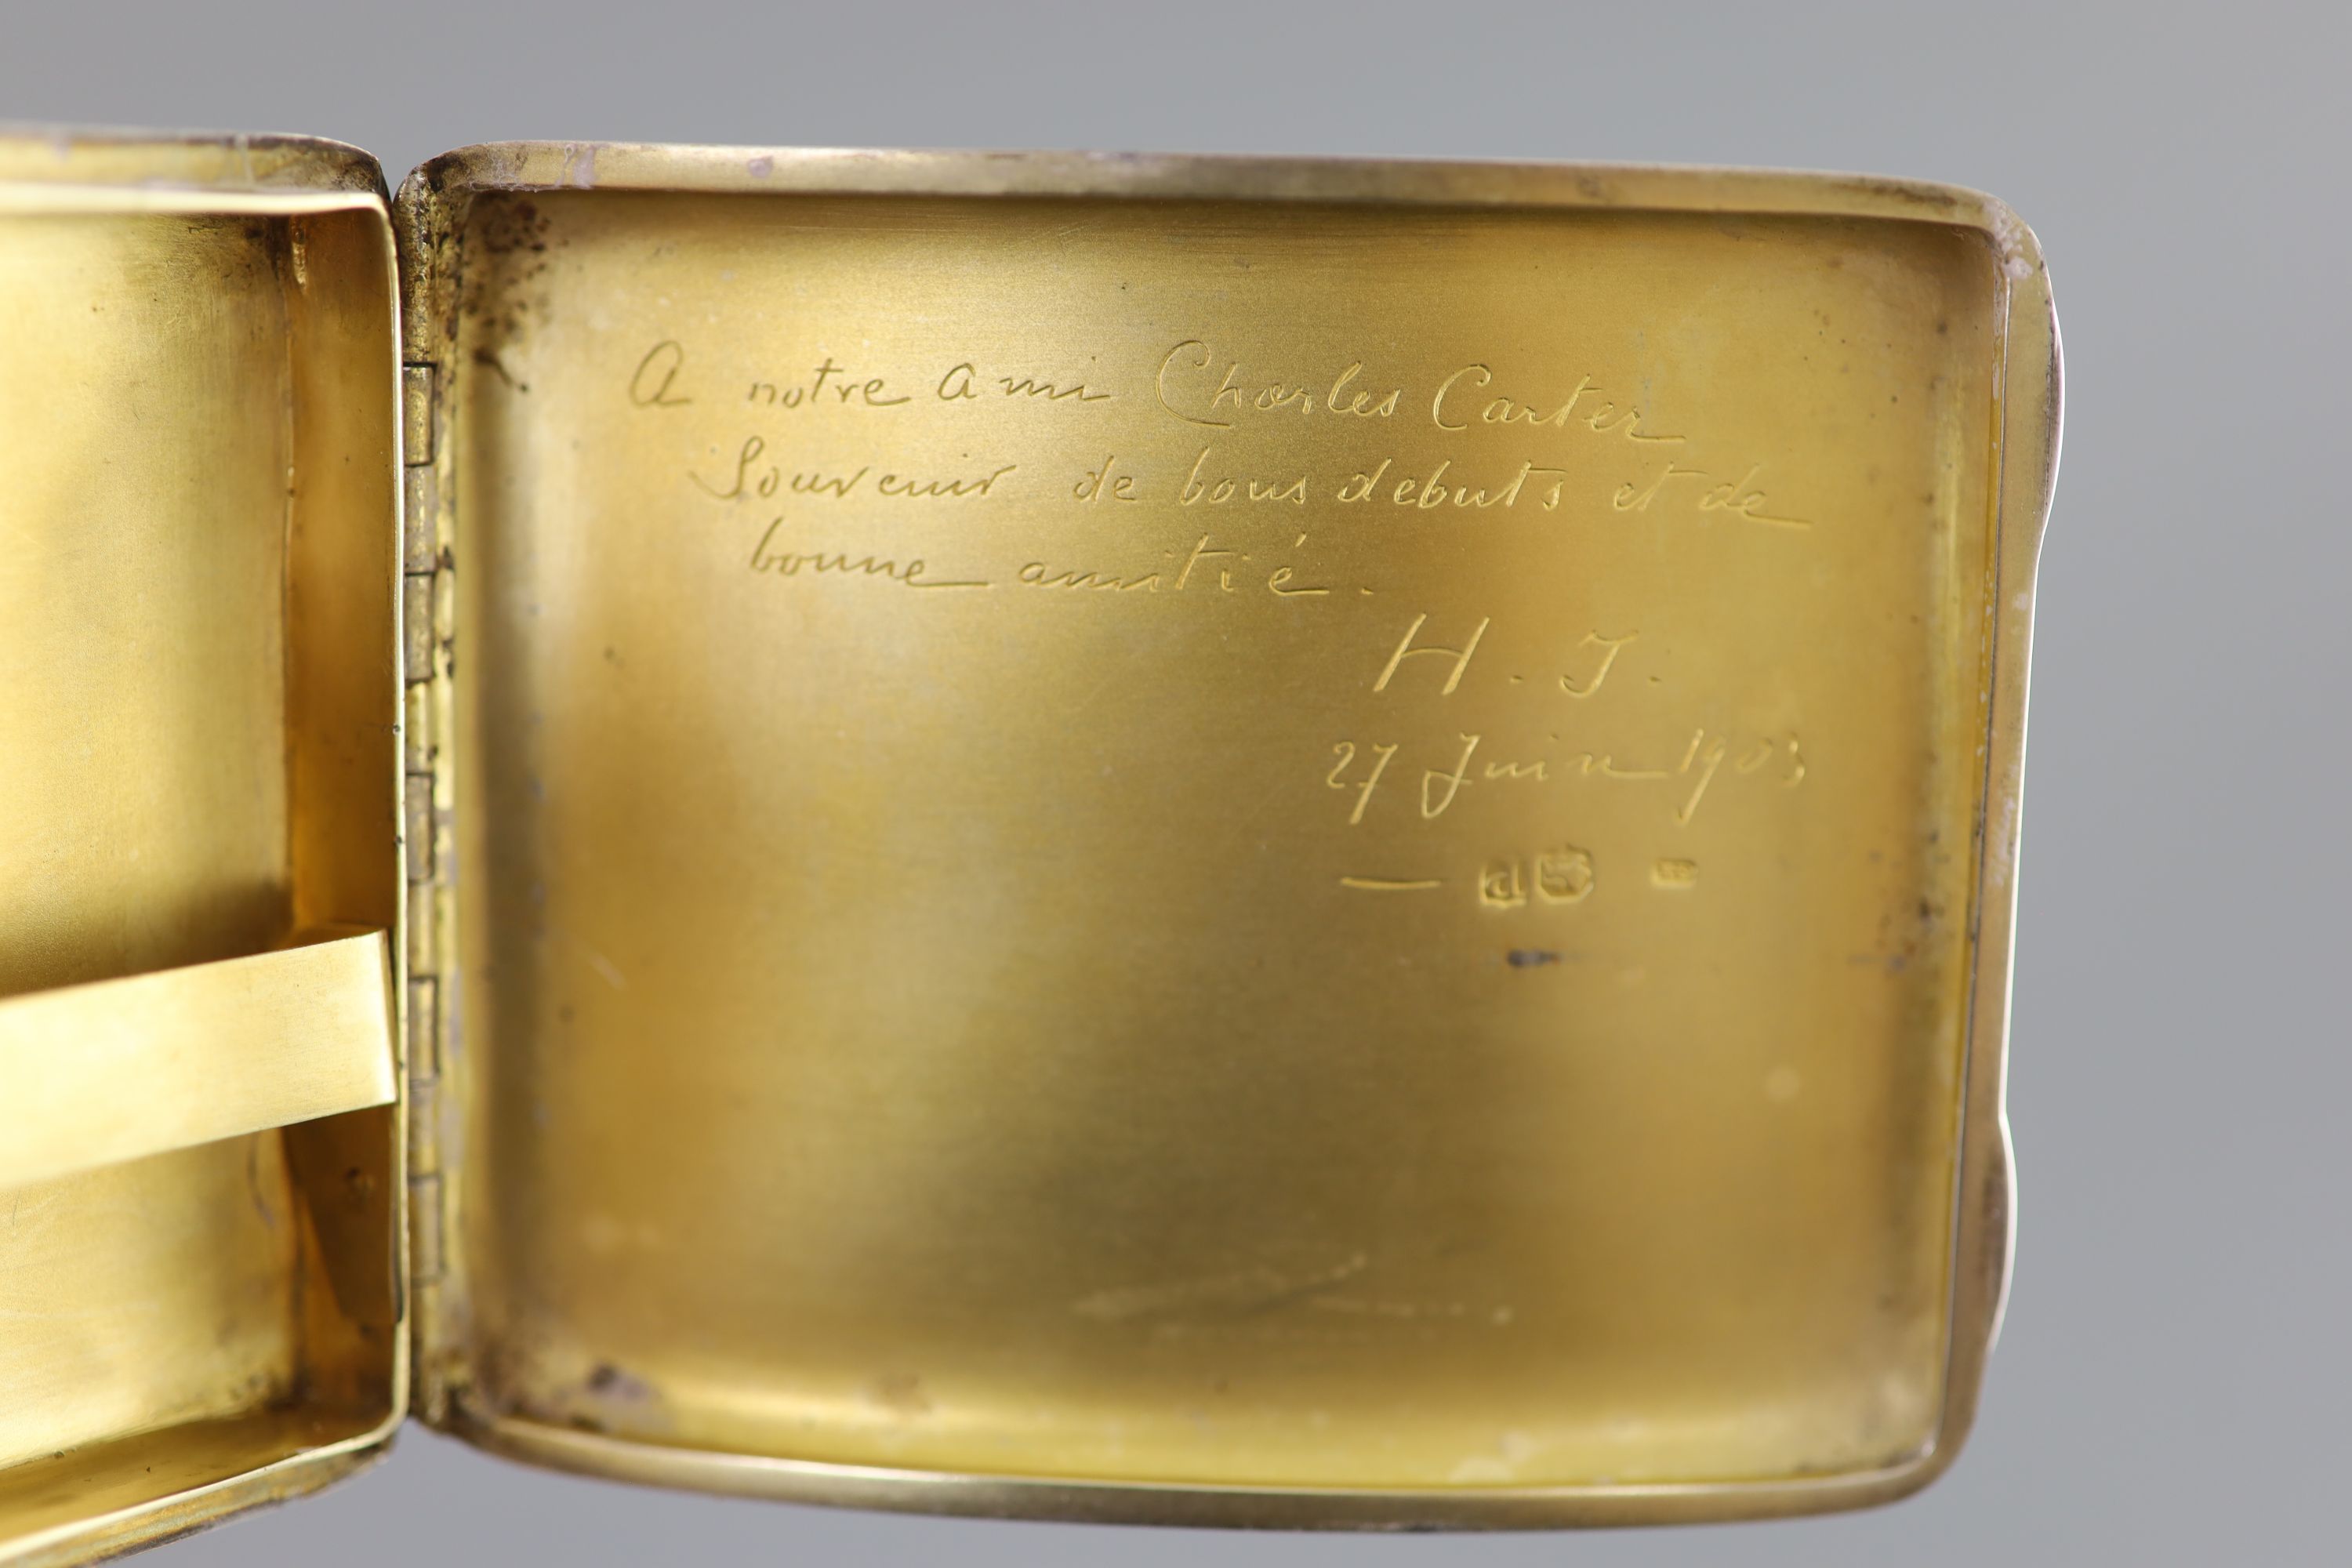 A notre ami Charles Carter
Souvenir de bons debuts et de
bonne amitié.
H. J.
27 Juin 1903
d